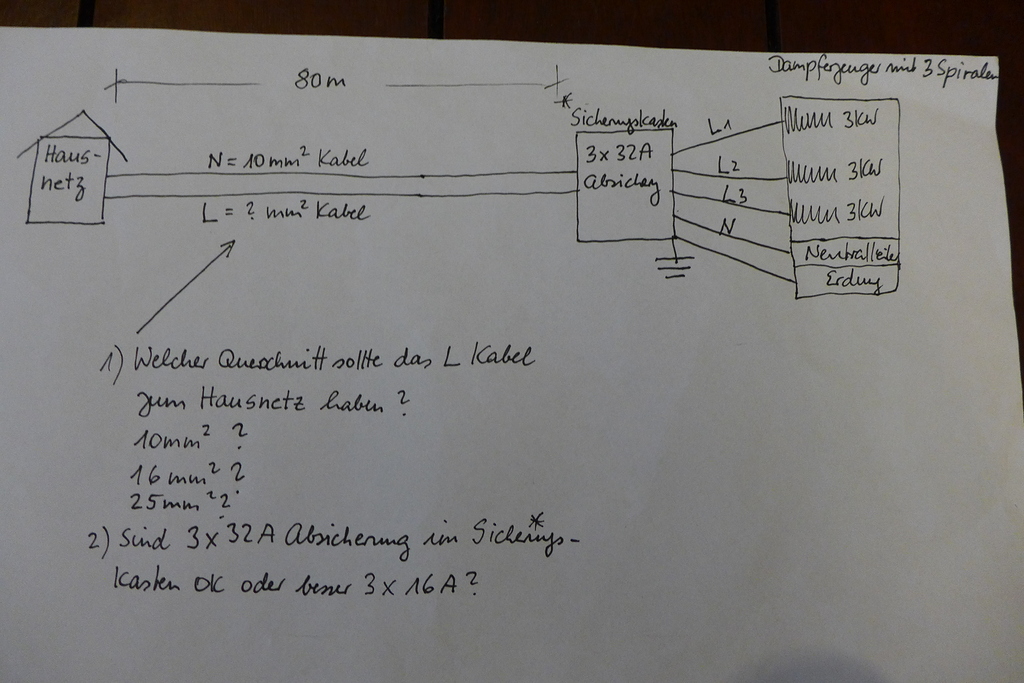 Dampferzeuger mit 3 Spiralen
80m
*
Sicherungskasten
Haus-
netz
N = 10mm² Kabel
L = ? mm² Kabel
3x32A
Absicherg
L1
L2
L3
N
3kW
3kW
3kW
Neutralleiter
Erdung
1) Welcher Querschnitt sollte das L Kabel
zum Hausnetz haben?
10mm² ?
16mm² ?
25mm² ?
2) Sind 3x32A Absicherung im Sicherungs*-
kasten OK oder besser 3x16A?